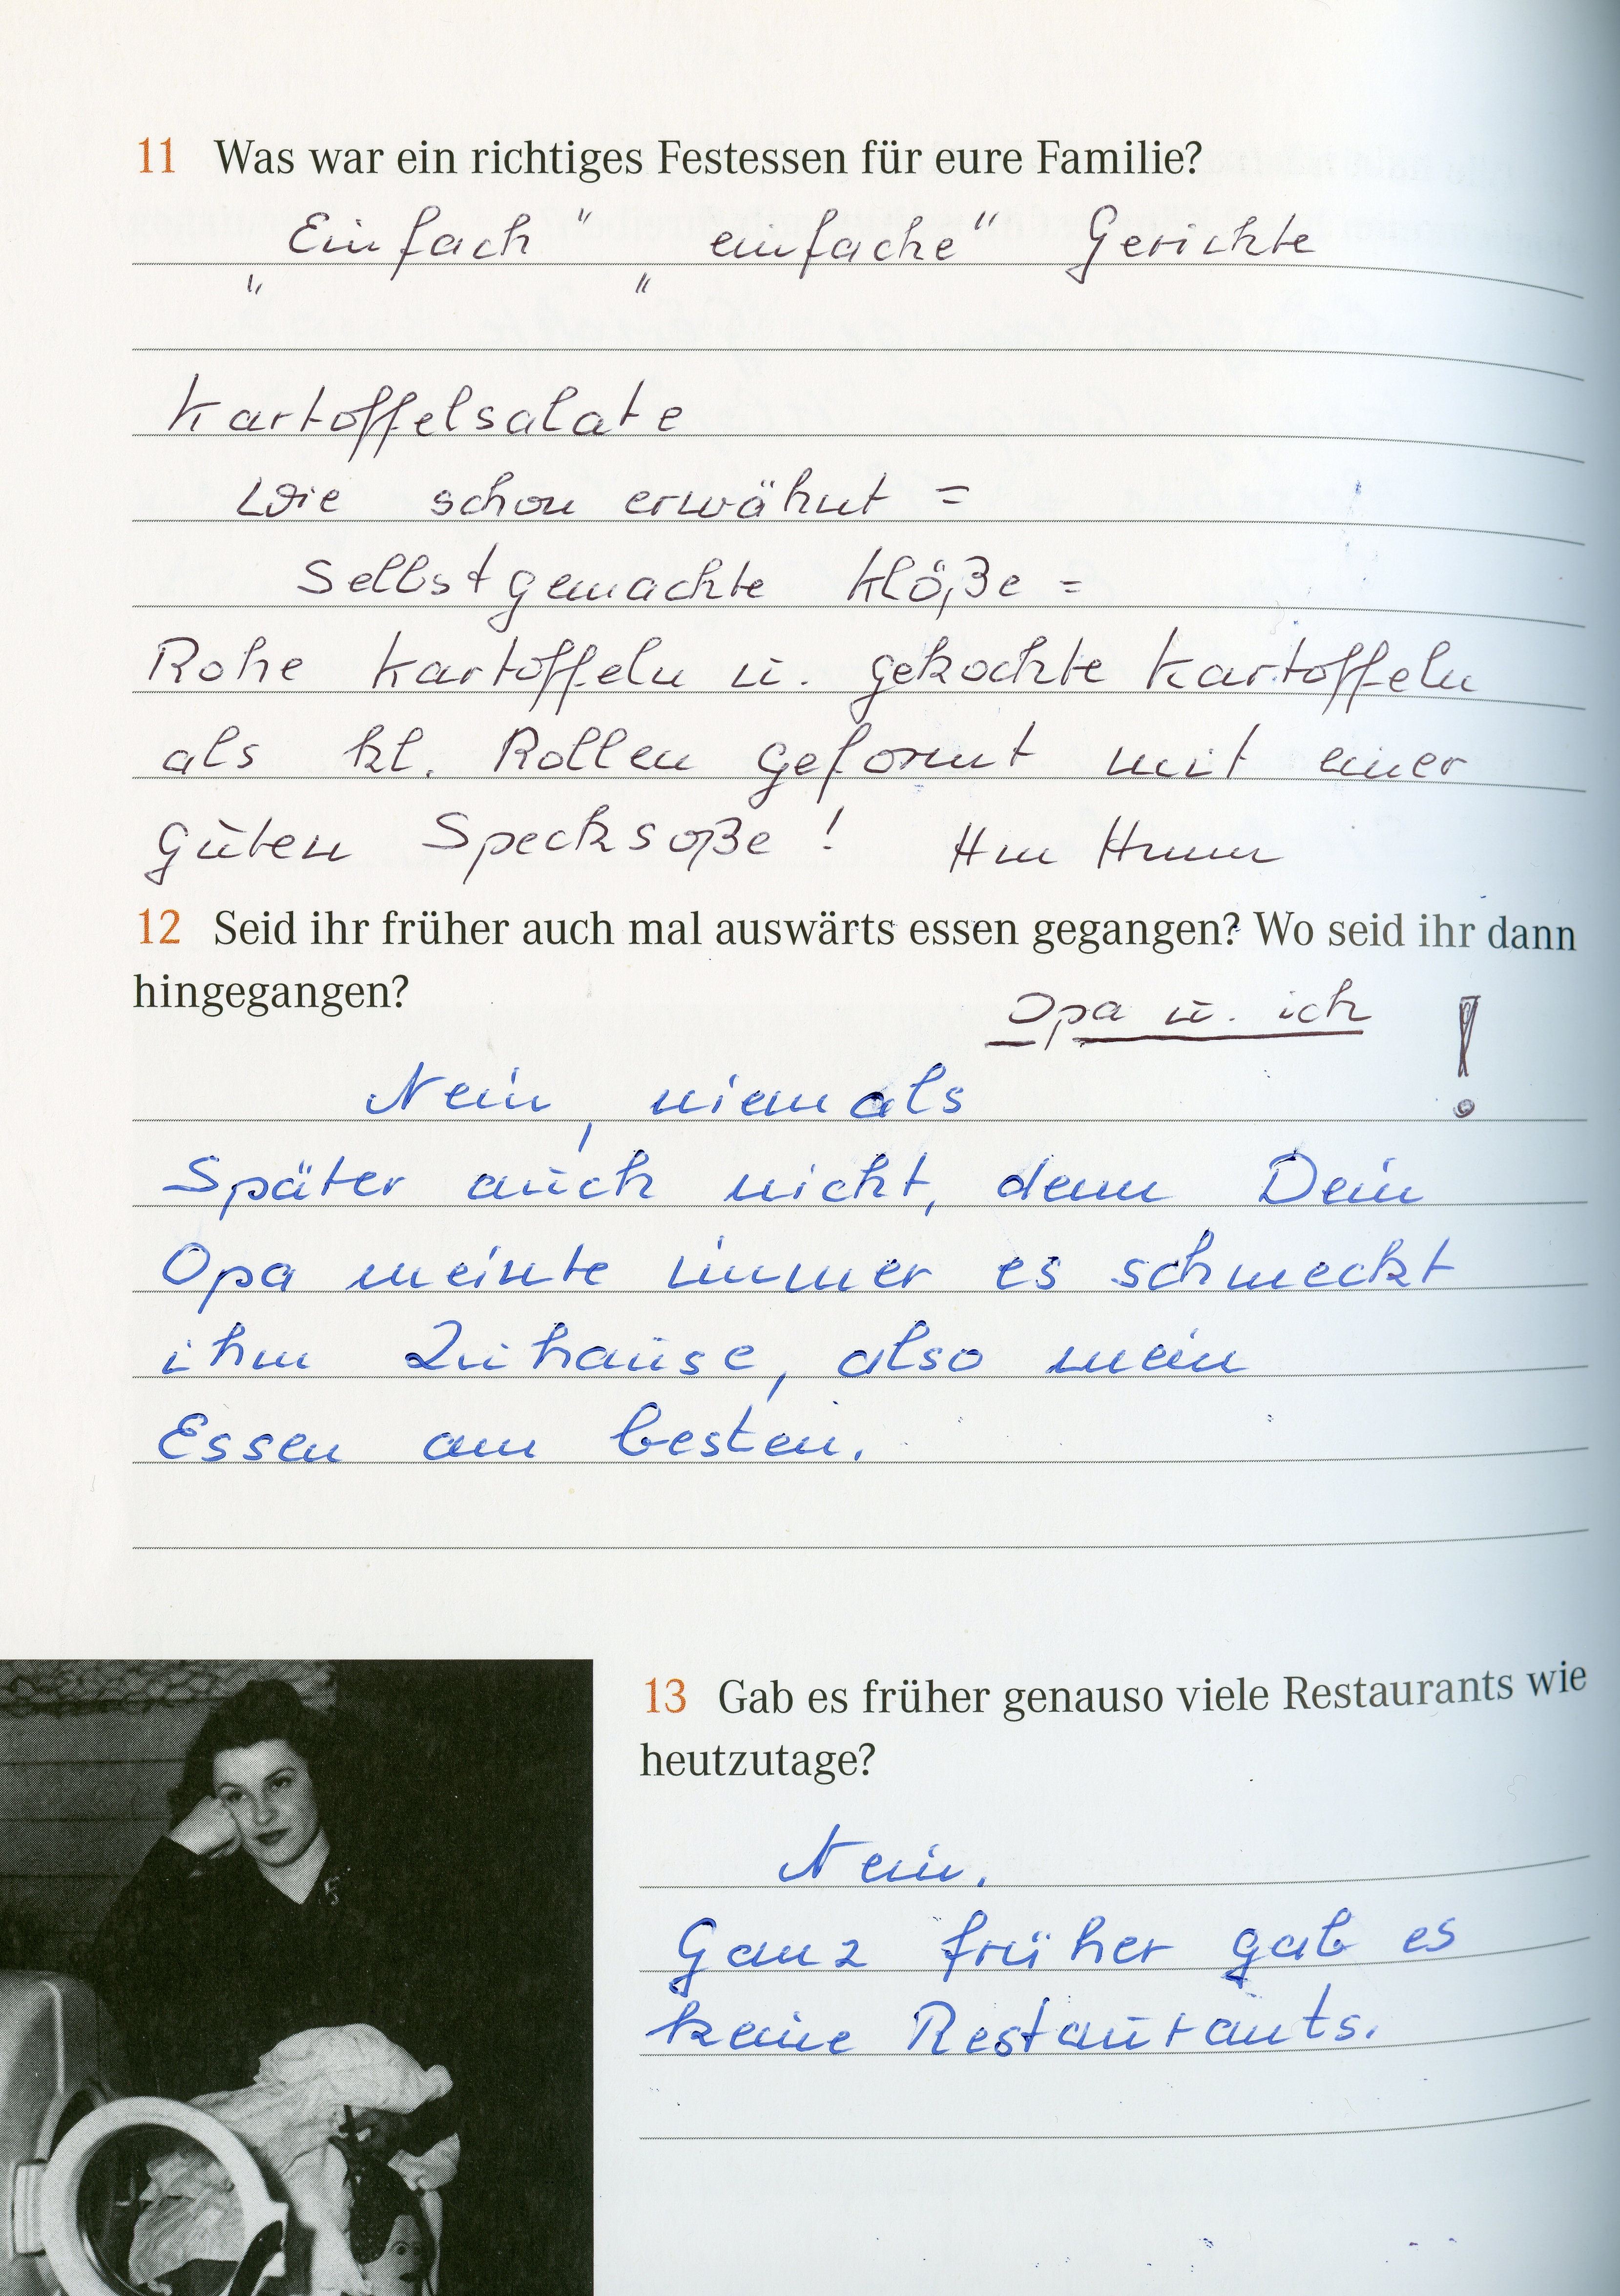 11 Was war ein richtiges Festessen für eure Familie?
„Einfach“ „einfache“ Gerichte
Kartoffelsalate
Wie schon erwähnt =
Selbstgemachte Klöße =
Rohe Kartoffeln u. gekochte Kartoffeln
als kl. Rollen geformt mit einer
guten Specksoße! Hm Hmm
12 Seid ihr früher auch mal auswärts essen gegangen? Wo seid ihr dann
hingegangen?
Opa u. ich !
Nein, niemals
Später auch nicht, denn Dein
Opa meinte immer es schmeckt
ihm Zuhause, also mein
Essen am besten.
13 Gab es früher genauso viele Restaurants wie
heutzutage?
Nein.
Ganz früher gab es
keine Restaurants.